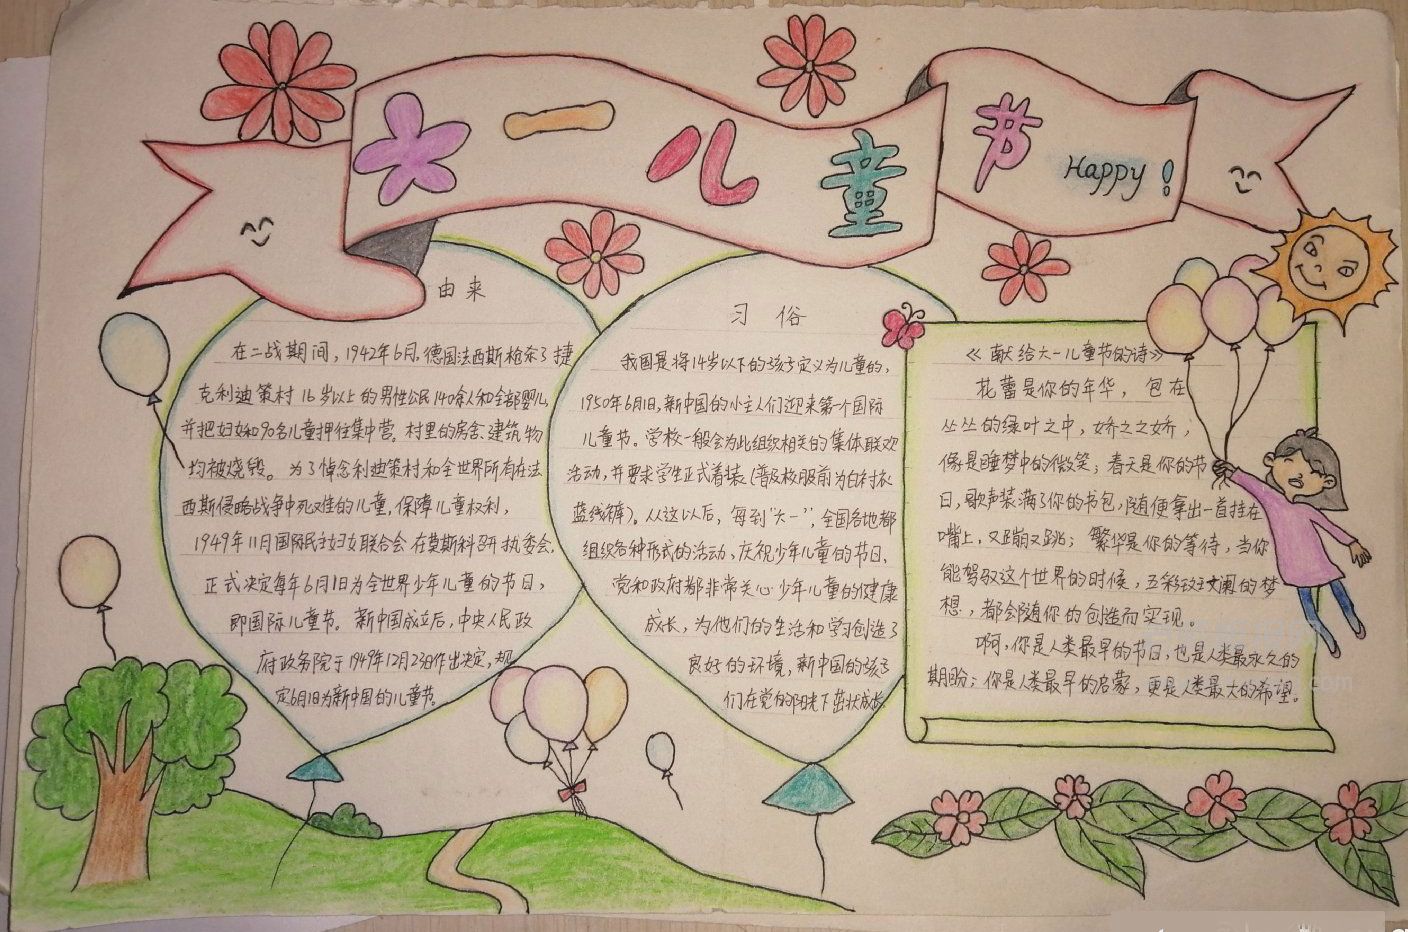 六一儿童节 Happy!
由来
在二战期间，1942年6月，德国法西斯枪杀了捷
克利迪策村16岁以上的男性公民140余人和全部婴儿，
并把妇女和90名儿童押往集中营。村里的房舍、建筑物
均被烧毁。为了悼念利迪策村和全世界所有在法
西斯侵略战争中死难的儿童，保障儿童权利，
1949年11月国际民主妇女联合会在莫斯科召开执委会，
正式决定每年6月1日为全世界少年儿童的节日，
即国际儿童节。新中国成立后，中央人民政
府政务院于1949年12月23日作出决定，规
定6月1日为新中国的儿童节。
习俗
我国是将14岁以下的孩子定义为儿童的，
1950年6月1日，新中国的小主人们迎来第一个国际
儿童节。学校一般会为此组织相关的集体联欢
活动，并要求学生正式着装（普及校服前为白衬衣
蓝线裤）。从这以后，每到“六一”，全国各地都
组织各种形式的活动，庆祝少年儿童的节日，
党和政府都非常关心少年儿童的健康
成长，为他们的生活和学习创造了
良好的环境，新中国的孩子
们在党的阳光下茁壮成长
《献给六一儿童节的诗》
花蕾是你的年华，包在
丛丛的绿叶之中，娇之之娇；
像是睡梦中的微笑；春天是你的节
日，歌声装满了你的书包，随便拿出一首挂在
嘴上，又蹦又跳；繁华是你的等待，当你
能驾驭这个世界的时候，五彩斑斓的梦
想，都会随你的创造而实现。
啊，你是人类最早的节日，也是人类最永久的
期盼；你是人类最早的启蒙，更是人类最大的希望。